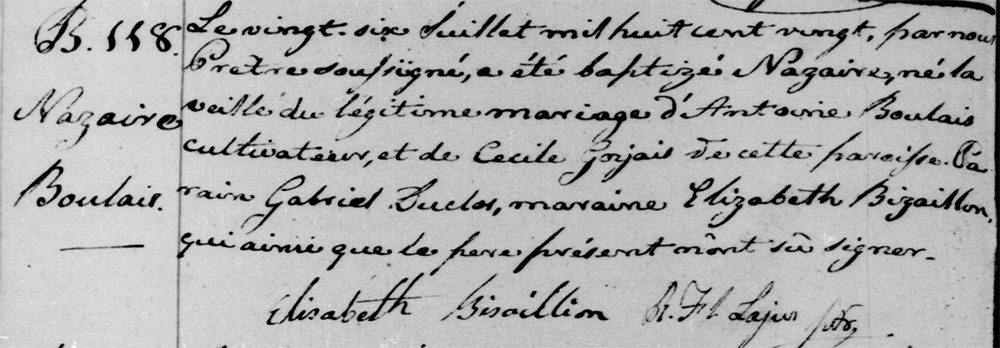 B. 118.
Nazaire
Boulais.
Le vingt-six Juillet mil huit cent vingt, par nous
Prêtre soussigné, a été baptizé Nazaire, né la
veille du légitime mariage d'Antoine Boulais
cultivateur, et de Cecile Gorjais de cette paroisse. Pa
rain Gabriel Duclos, maraine Elizabeth Bizaillon,
qui ainsi que le pere présent n'ont sû signer.
Elisabeth Bisaillion
R. Fl. Lajus ptr.